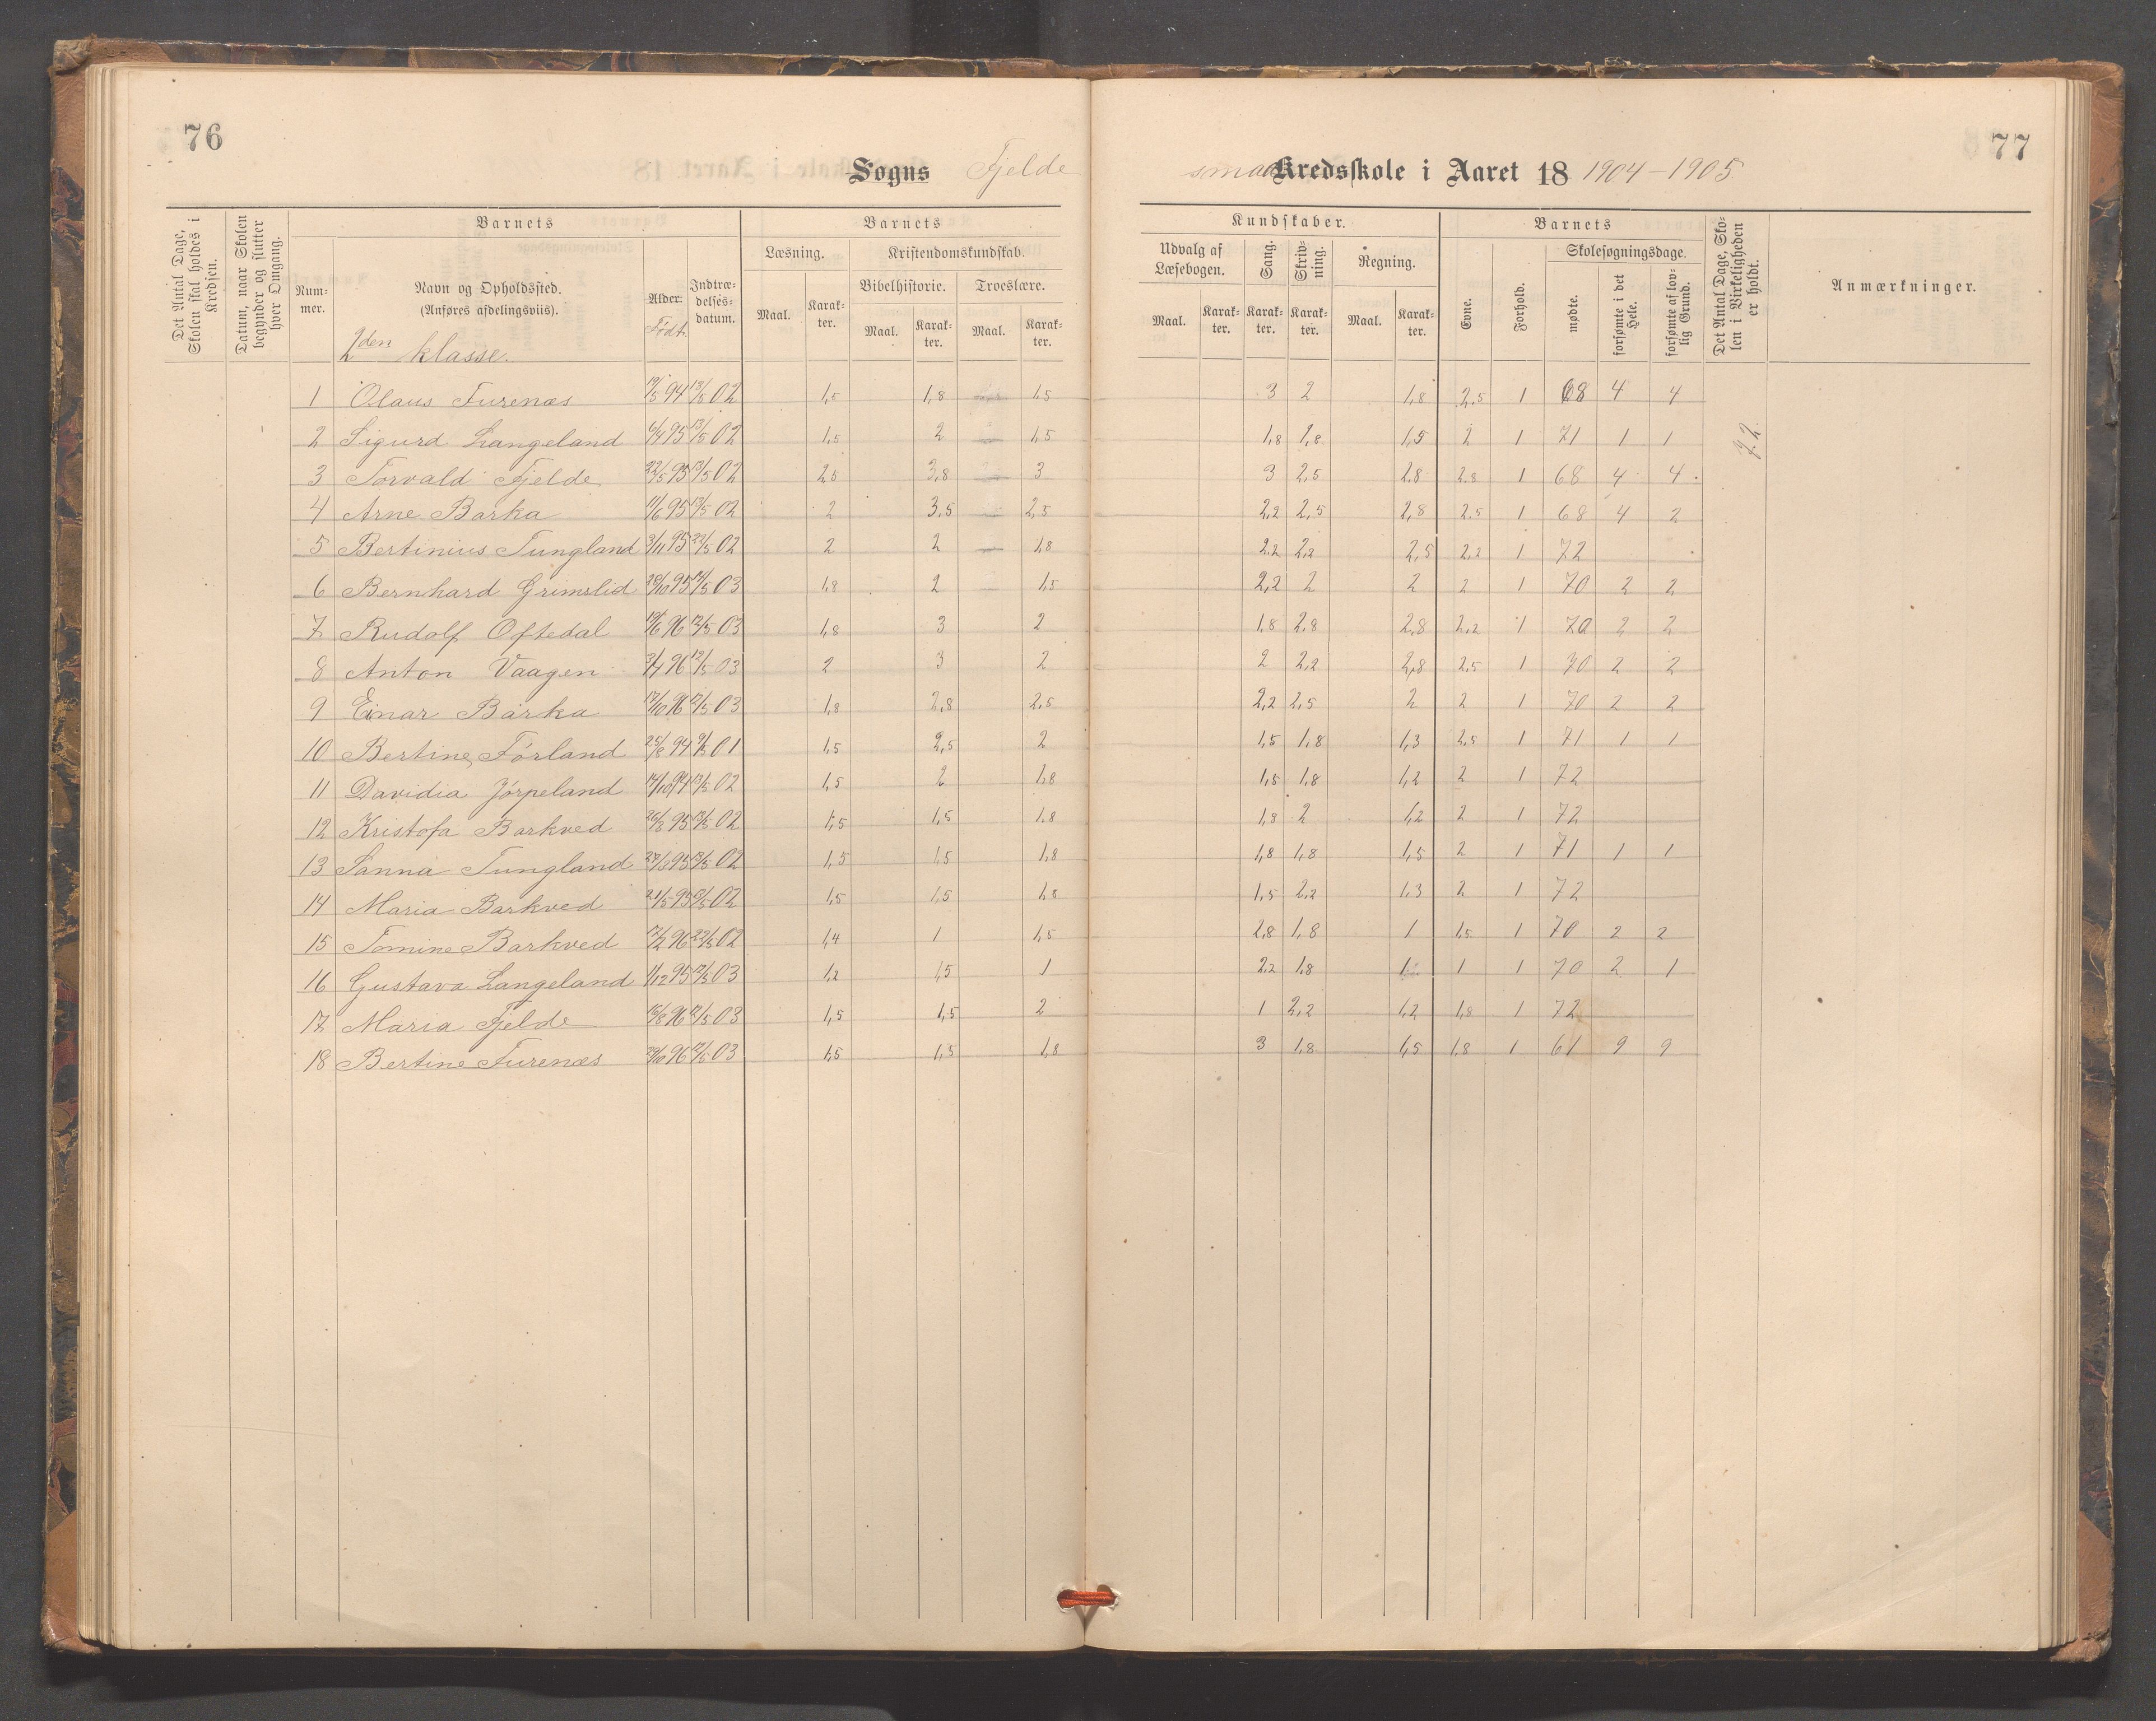 76
77
Sogns Fjelde
smaa Kredsskole i Aaret 18 1904-1905
Det Antal Dage, Skolen skal holdes i Kredsen.
Datum, naar Skolen begynder og slutter hver Omgang.
Barnets
Num-
mer.
Navn og Opholdssted.
(Anføres afdelingsviis).
2den klasse.
Alder.
Født.
Indtræ-
delses-
datum.
Barnets
Læsning.
Maal.
Karak-
ter.
Kristendomskundskab.
Bibelhistorie.
Troeslære.
Maal.
Karak-
ter.
Maal.
Karak-
ter.
Kundskaber.
Udvalg af
Læsebogen.
Maal.
Karak-
ter.
Sang.
Karak-
ter.
Skriv-
ning.
Karak-
ter.
Regning.
Maal.
Karak-
ter.
Barnets
Evne.
Forhold.
Skolesøgningsdage.
mødte.
forsømte i det Hele.
forsømte af lov-
lig Grund.
Det Antal Dage, Sko-
len i Virkeligheden
er holdt.
Anmærkninger.
72
1 Olaus Furenæs 19/5 94 13/5 02 1,5 1,8 1,5 3 2 1,8 2,5 1 68 4 4
2 Sigurd Langeland 6/4 95 13/5 02 1,5 2 1,5 1,8 1,8 1,5 2 1 71 1 1
3 Torvald Fjelde 22/5 95 13/5 02 2,5 3,8 3 3 2,5 2,8 2,8 1 68 4 4
4 Arne Barka 11/6 95 13/5 02 2 3,5 2,5 2,2 2,5 2,8 2,5 1 68 4 2
5 Bertinius Tungland 3/11 95 22/5 02 2 2 1,8 2,2 2,2 2,5 2,2 1 72
6 Bernhard Grimslid 28/10 95 12/5 03 1,8 2 1,5 2,2 2 2 2 1 70 2 2
7 Rudolf Oftedal 19/6 96 12/5 03 1,8 3 2 1,8 2,8 2,8 2,2 1 70 2 2
8 Anton Vaagen 3/7 96 12/5 03 2 3 2 2 2,2 2,8 2,5 1 70 2 2
9 Einar Barka 17/10 96 12/5 03 1,8 2,8 2,5 2,2 2,5 2 2 1 70 2 2
10 Bertine Førland 25/8 94 9/5 01 1,5 2,5 2 1,5 1,8 1,3 2,5 1 71 1 1
11 Davidia Jørpeland 17/10 94 13/5 02 1,5 2 1,8 1,5 1,8 1,2 2 1 72
12 Kristofa Barkved 26/3 95 13/5 02 1,5 1,5 1,8 1,8 2 1,2 2 1 72
13 Sanna Tungland 95 13/5 02 1,5 1,5 1,8 1,8 1,8 1,5 2 1 71 1 1
14 Maria Barkved 21/5 95 13/5 02 1,5 1,5 1,8 1,5 2,2 1,3 2 1 72
15 Tomine Barkved 17/2 96 22/5 02 1,4 1 1,5 2,8 1,8 1 1,5 1 70 2 2
16 Gustava Langeland 1/12 95 12/5 03 1,2 1,5 1 2,2 1,8 1 1 1 70 2 1
17 Maria Fjelde 16/8 96 12/5 03 1,5 1,5 2 1 2,2 1,2 1,8 1 72
18 Bertine Furenæs 29/10 96 12/5 03 1,5 1,5 1,8 3 1,8 1,5 1,8 1 61 9 9